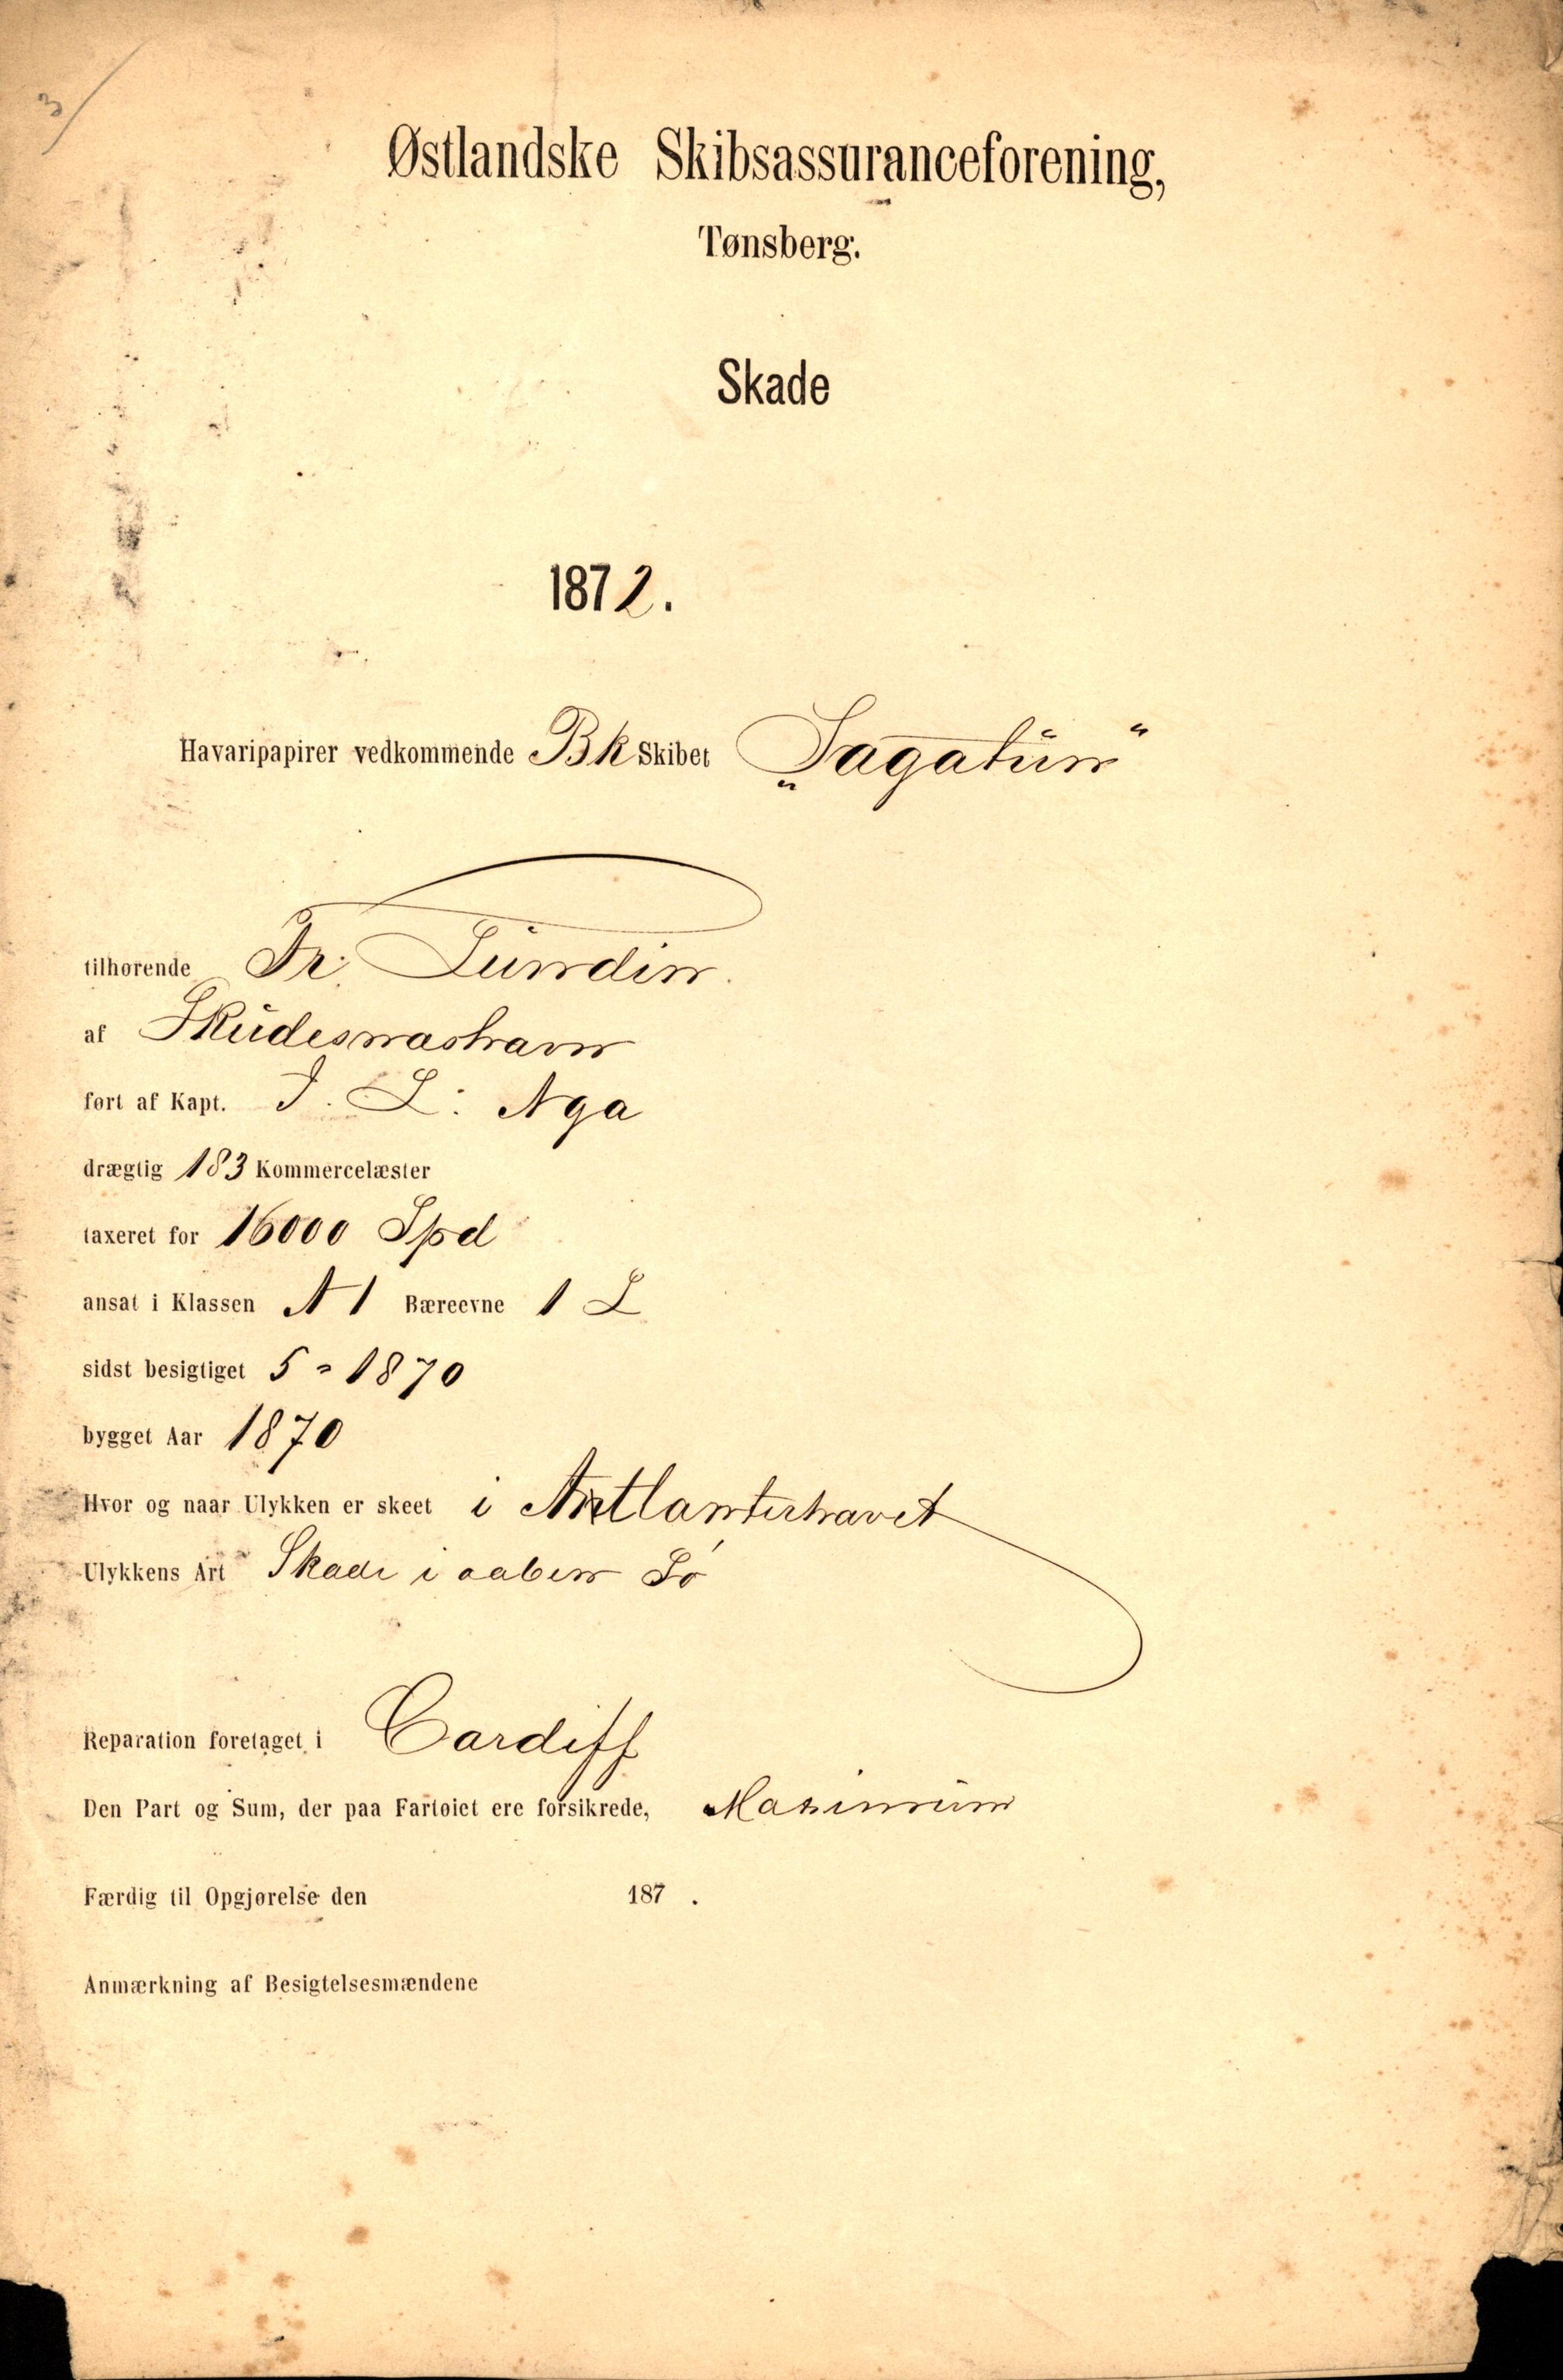 3/
Østlandske Skibsassuranceforening,
Tønsberg.
Skade
1872.
Havaripapirer vedkommende Bk Skibet „Sagatün"
tilhørende Fr. Lündin.
af Sküdesnæshavn
ført af Kapt. J. L. Aga
drægtig 183 Kommercelæster
taxeret for 16000 Spd
ansat i Klassen A 1 Bæreevne 1 L
sidst besigtiget 5 - 1870
bygget Aar 1870
Hvor og naar Ulykken er skeet i Atlanterhavet
Ulykkens Art Skade i aaben Sö
Reparation foretaget i Cardiff
Den Part og Sum, der paa Fartøiet ere forsikrede, Maximüm
Færdig til Opgjørelse den 187 .
Anmærkning af Besigtelsesmændene